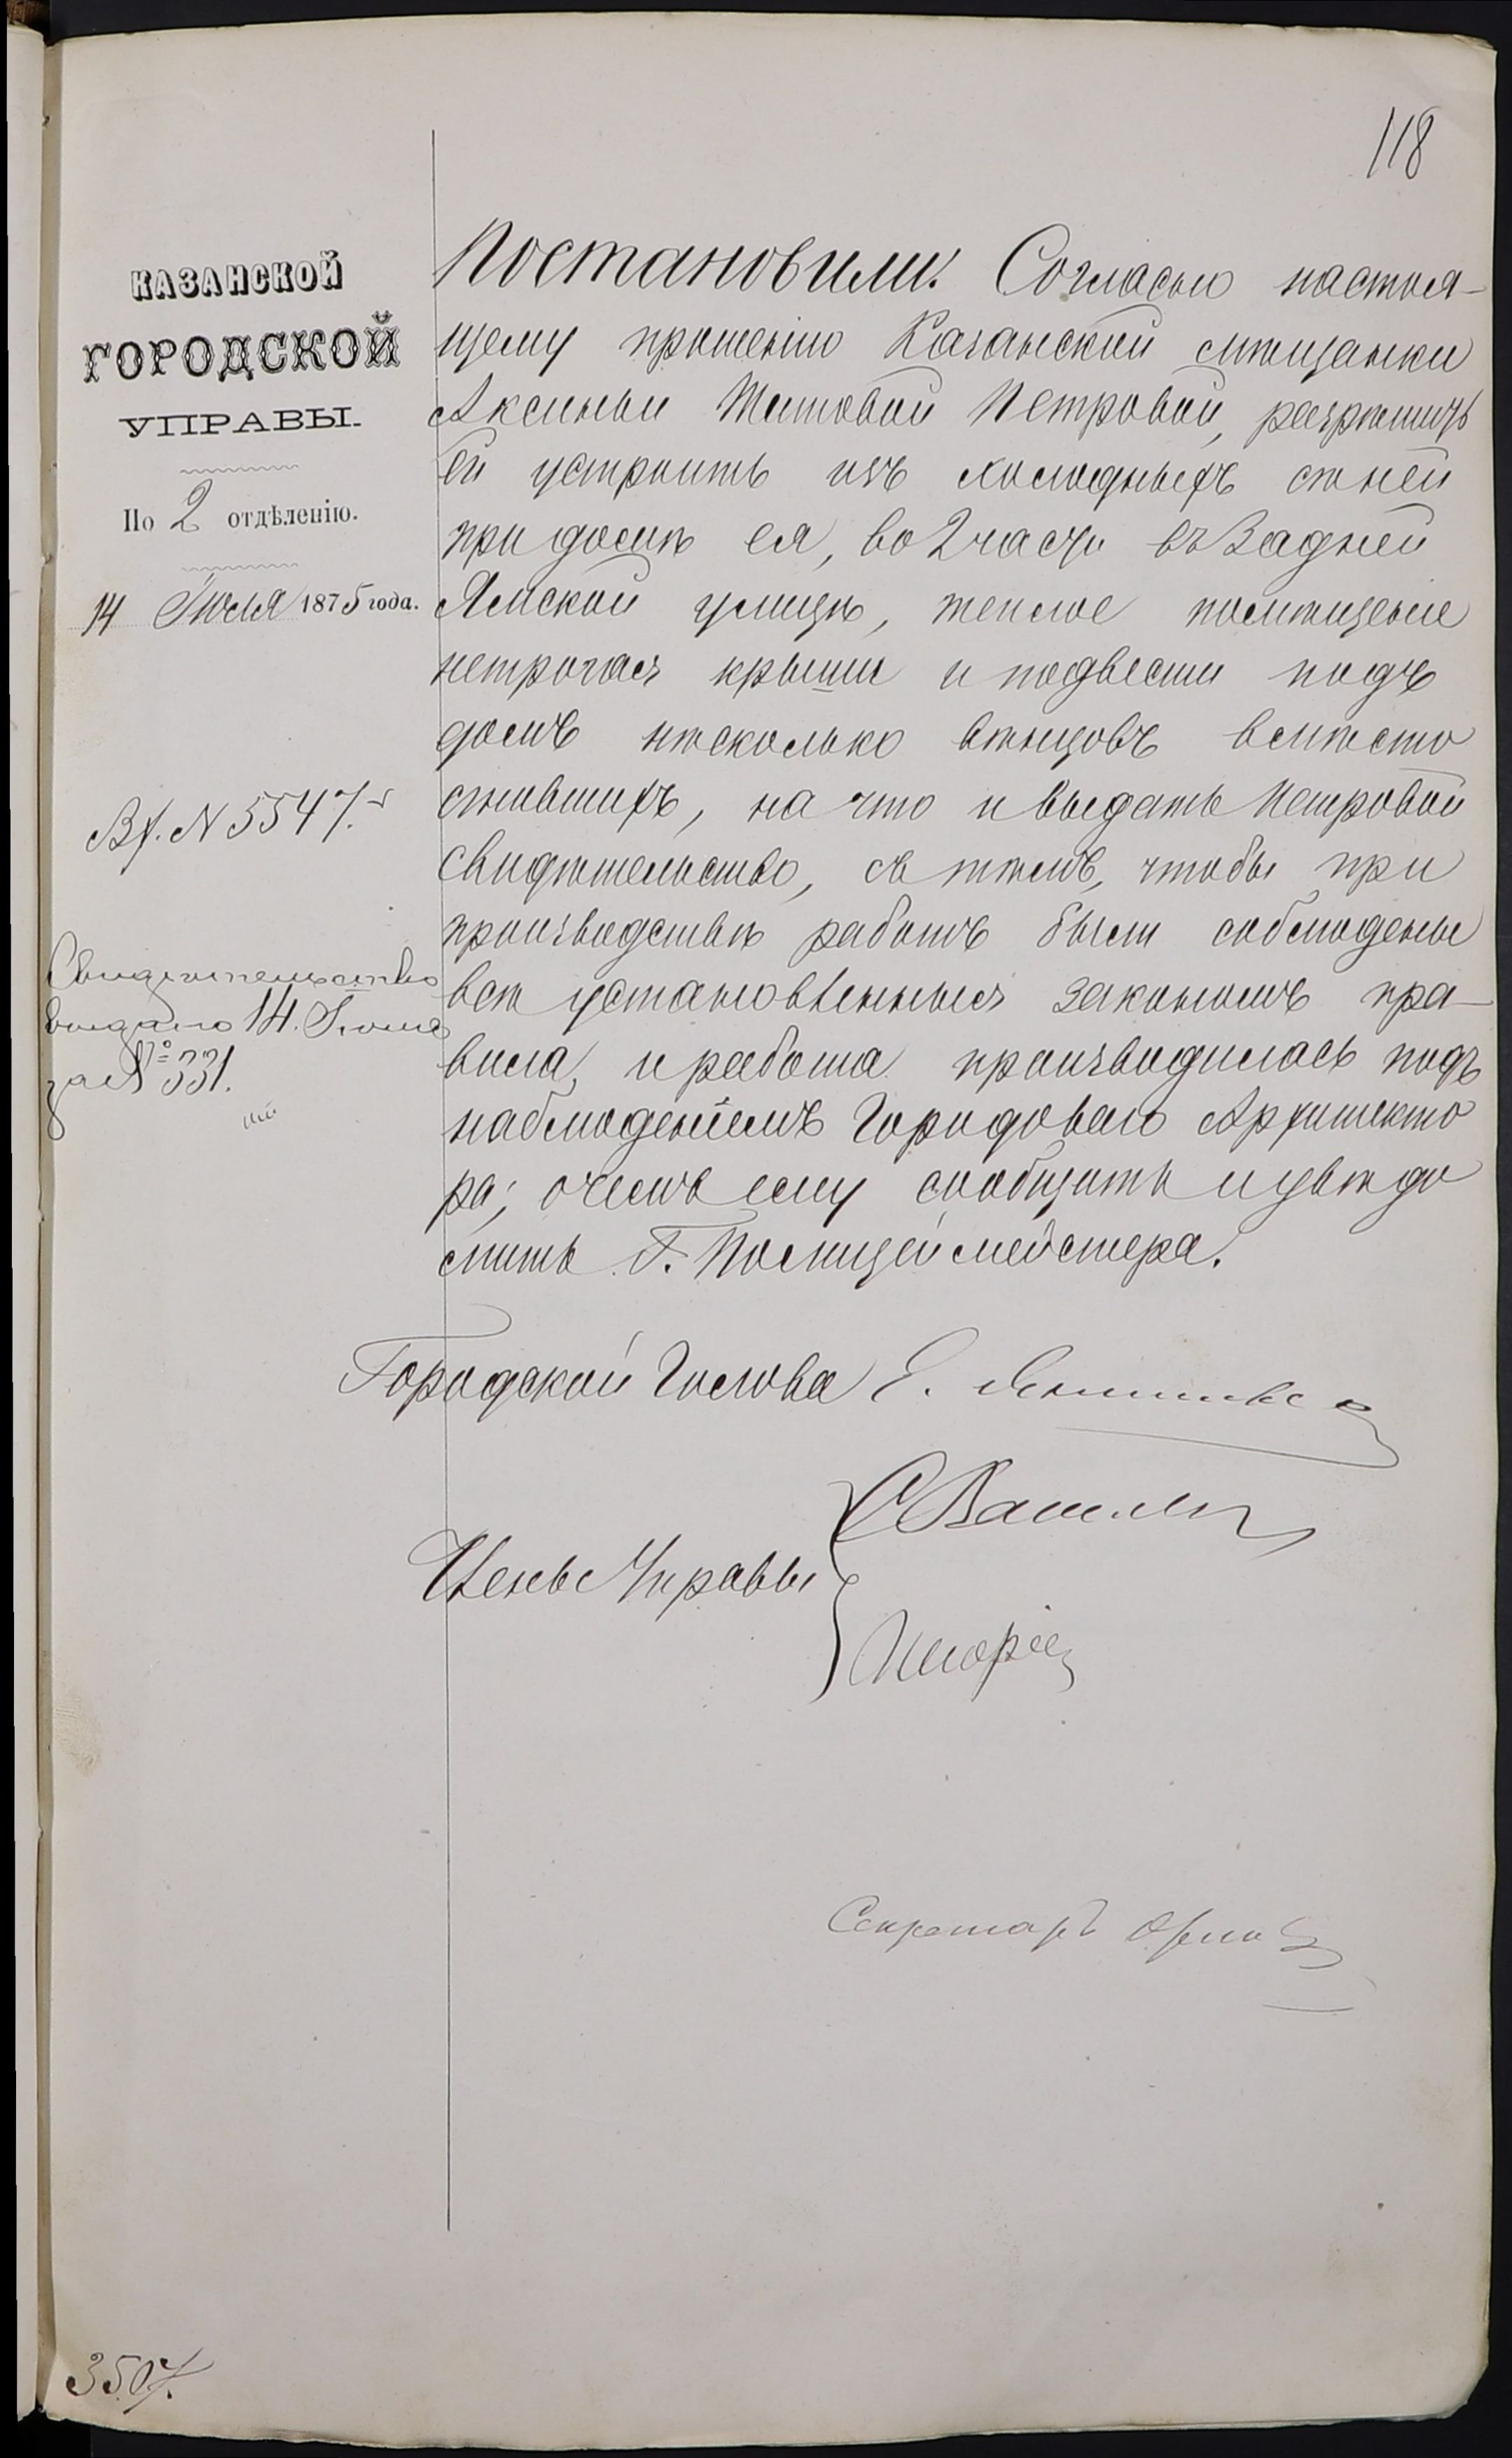 118
КАЗАНСКОЙ
ГОРОДСКОЙ
УПРАВЫ.
По 2 отдѣленію.
14 Июля 1875 года.
Вх. N 5547.
Свидѣтельство
выдано 14 Июля
за № 331.
Постановили: Согласно настоя-
щему прошенію Казанской мѣщанки
Аксиньи Титовой Петровой, разрѣшить
ей устроить изъ холодныхъ сѣней
при домѣ ея, во 2 части въ Задней
Ямской улицѣ, теплое помѣщеніе
нетрогая крыши и подвести подъ
домъ нѣсколько вѣнцовъ вмѣсто
сгнившихъ, на что и выдать Петровой
свидѣтельство, съ тѣмъ, чтобы при
производствѣ работъ были соблюдены
всѣ установленныя закономъ пра-
вила, и работа производилась подъ
наблюденіемъ Городоваго Архитекто
ра; о чемъ ему сообщить и увѣдо
мить Г. Полицеймейстера.
Городской Голова Е.
Члены Управы
Секретарь Орлов
3507.